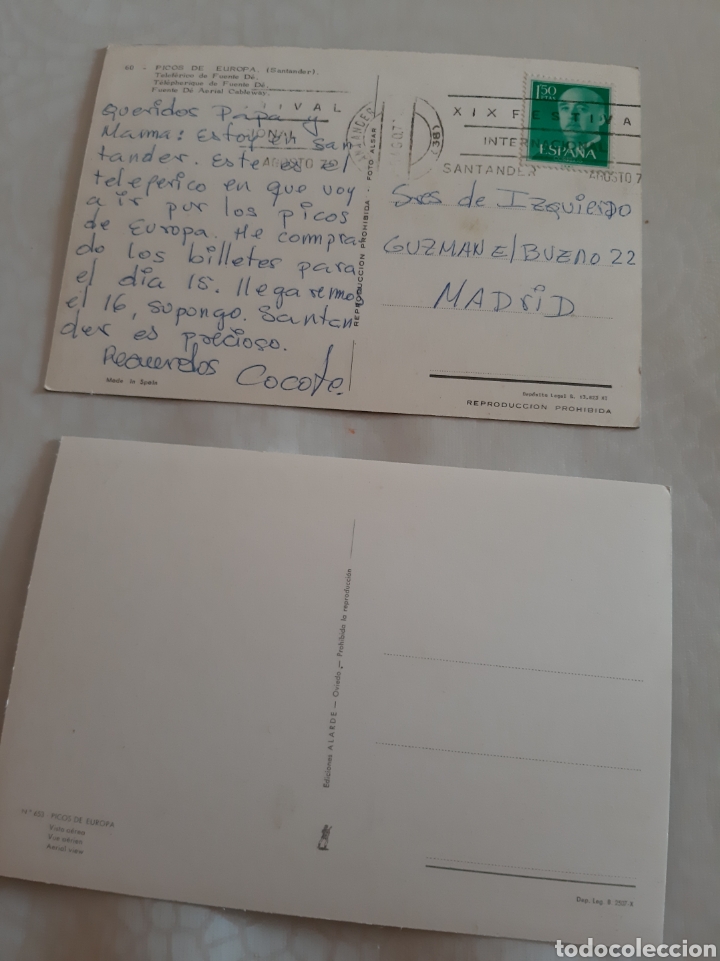 60 - PICOS DE EUROPA. (Santander).
Teleférico de Fuente Dé.
Téléphérique de Fuente Dé.
Fuente Dé Aerial Cableway.
IVAL
AGOSTO
Queridos Papa y
Mama: Estoy en San
tander. Este es el
teleferico en que voy
a ir por los picos
de Europa. He compra
do los billetes para
el dia 15. llegaremos
el 16, supongo. Santan
der es precioso.
Recuerdos Cocote.
Made in Spain
REPRODUCCION PROHIBIDA - FOTO ALSAR
1.50
PTAS
ESPAÑA
XIX FESTIVA
INTER
SANTANDER AGOSTO 7
Sres de Izquierdo
GUZMAN E/ BUENO 22
MADRID
REPRODUCCION PROHIBIDA
Ediciones ALARDE — Oviedo — Prohibida la reproducción
N.º 653 - PICOS DE EUROPA
Vista aérea
Vue aérien
Aerial view
Dep. Leg. B
todocoleccion